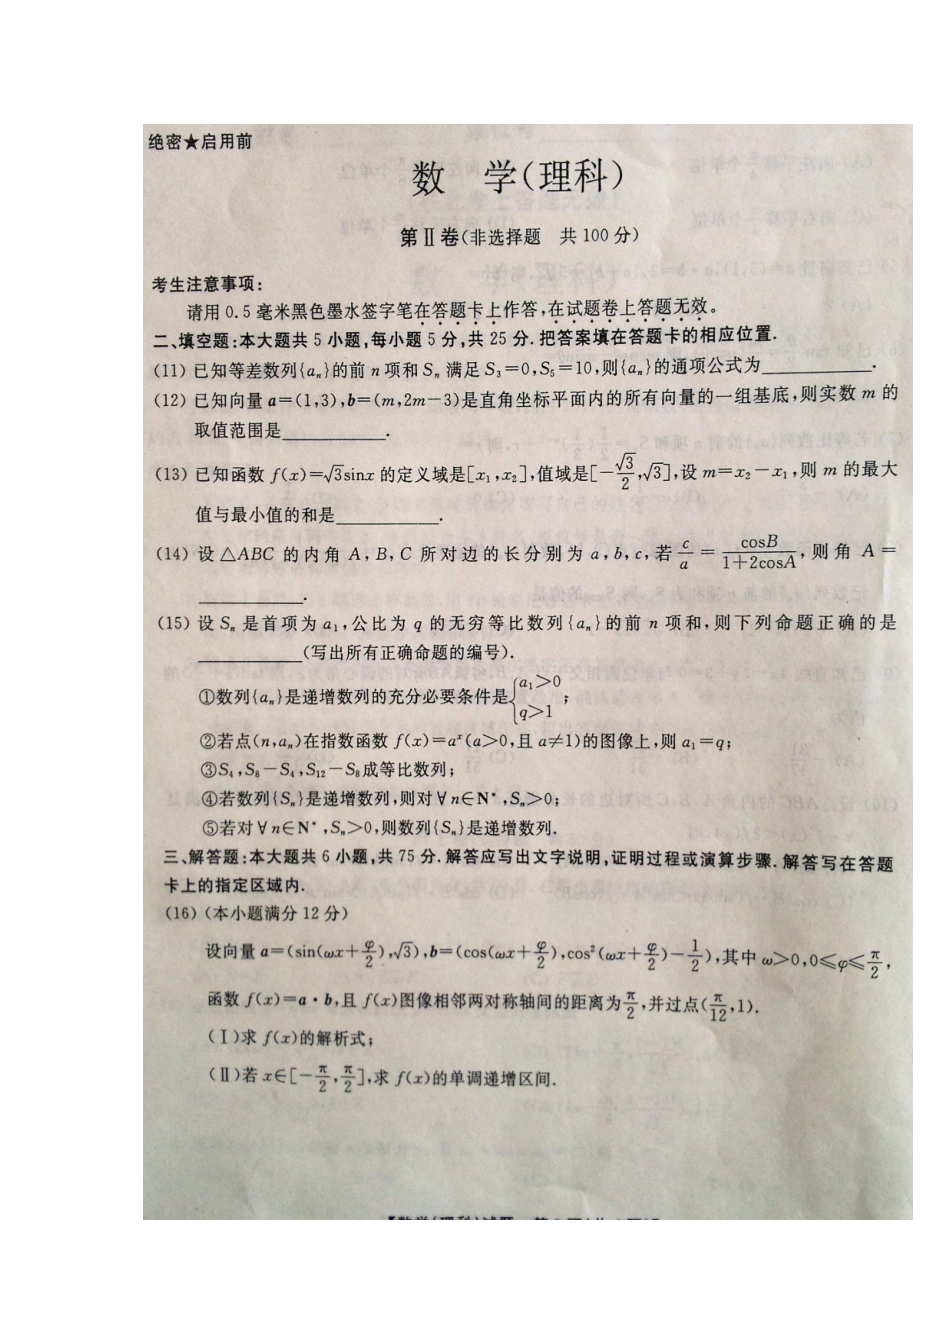 绝密★启用前
数 学(理科)
第Ⅱ卷(非选择题 共100分)
考生注意事项:
请用0.5毫米黑色墨水签字笔在答题卡上作答,在试题卷上答题无效。
二、填空题:本大题共5小题,每小题5分,共25分.把答案填在答题卡的相应位置.
(11)已知等差数列{aₙ}的前n项和Sₙ满足S₃=0,S₅=10,则{aₙ}的通项公式为________.
(12)已知向量a=(1,3),b=(m,2m-3)是直角坐标平面内的所有向量的一组基底,则实数m的
取值范围是________.
(13)已知函数f(x)=√3sinx的定义域是[x₁,x₂],值域是[-√3/2,√3],设m=x₂-x₁,则m的最大
值与最小值的和是________.
(14)设△ABC的内角A,B,C所对边的长分别为a,b,c,若c/a=cosB/(1+2cosA),则角A=
________.
(15)设Sₙ是首项为a₁,公比为q的无穷等比数列{aₙ}的前n项和,则下列命题正确的是
________(写出所有正确命题的编号).
①数列{aₙ}是递增数列的充分必要条件是{a₁>0 q>1;
②若点(n,aₙ)在指数函数f(x)=aˣ(a>0,且a≠1)的图像上,则a₁=q;
③S₄,S₈-S₄,S₁₂-S₈成等比数列;
④若数列{Sₙ}是递增数列,则对∀n∈N*,Sₙ>0;
⑤若对∀n∈N*,Sₙ>0,则数列{Sₙ}是递增数列.
三、解答题:本大题共6小题,共75分.解答应写出文字说明,证明过程或演算步骤.解答写在答题
卡上的指定区域内.
(16)(本小题满分12分)
设向量a=(sin(ωx+φ/2),√3),b=(cos(ωx+φ/2),cos²(ωx+φ/2)-1/2),其中ω>0,0≤φ≤π/2,
函数f(x)=a·b,且f(x)图像相邻两对称轴间的距离为π/2,并过点(π/12,1).
(Ⅰ)求f(x)的解析式;
(Ⅱ)若x∈[-π/2,π/2],求f(x)的单调递增区间.